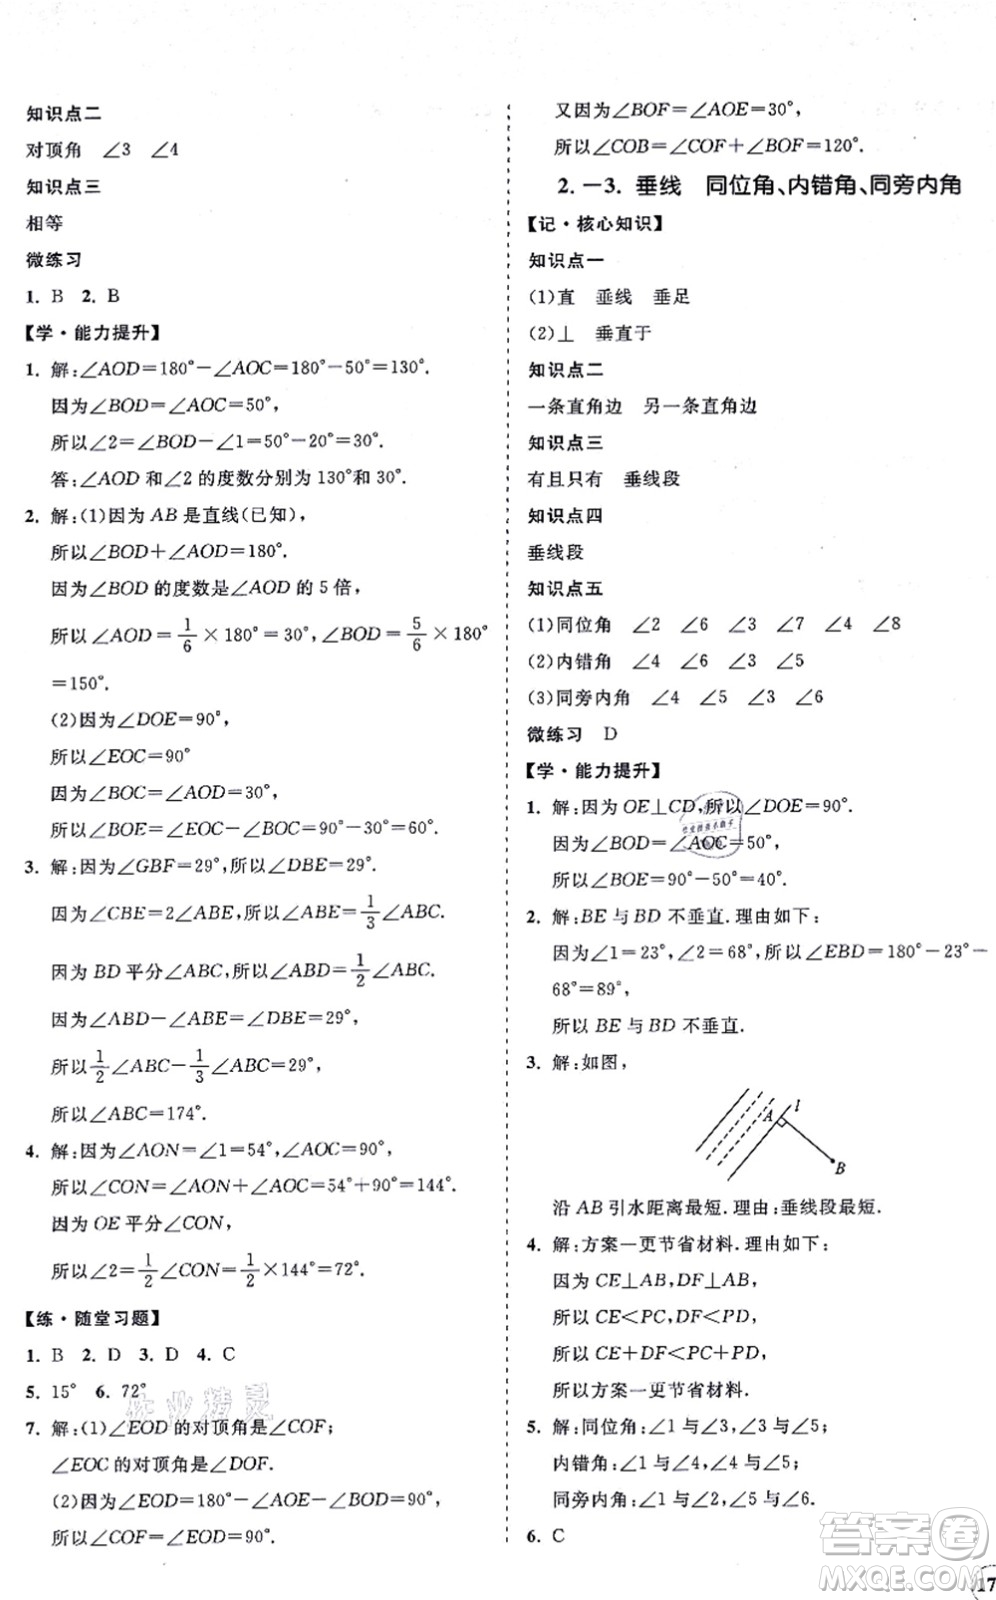 知识点二
对顶角　∠3　∠4
知识点三
相等
微练习
1. B　2. B
【学·能力提升】
1. 解:∠AOD=180°-∠AOC=180°-50°=130°.
因为∠BOD=∠AOC=50°,
所以∠2=∠BOD-∠1=50°-20°=30°.
答:∠AOD 和∠2 的度数分别为 130°和 30°.
2. 解:(1)因为 AB 是直线(已知),
所以∠BOD+∠AOD=180°.
因为∠BOD 的度数是∠AOD 的 5 倍,
所以∠AOD=1/6×180°=30°,∠BOD=5/6×180°
=150°.
(2)因为∠DOE=90°,
所以∠EOC=90°
因为∠BOC=∠AOD=30°,
所以∠BOE=∠EOC-∠BOC=90°-30°=60°.
3. 解:因为∠GBF=29°,所以∠DBE=29°.
因为∠CBE=2∠ABE,所以∠ABE=1/3∠ABC.
因为 BD 平分∠ABC,所以∠ABD=1/2∠ABC.
因为∠ABD-∠ABE=∠DBE=29°,
所以1/2∠ABC-1/3∠ABC=29°,
所以∠ABC=174°.
4. 解:因为∠AON=∠1=54°,∠AOC=90°,
所以∠CON=∠AON+∠AOC=54°+90°=144°.
因为 OE 平分∠CON,
所以∠2=1/2∠CON=1/2×144°=72°.
【练·随堂习题】
1. B　2. D　3. D　4. C
5. 15°　6. 72°
7. 解:(1)∠EOD 的对顶角是∠COF;
∠EOC 的对顶角是∠DOF.
(2)因为∠EOD=180°-∠AOE-∠BOD=90°,
所以∠COF=∠EOD=90°.
又因为∠BOF=∠AOE=30°,
所以∠COB=∠COF+∠BOF=120°.
2.—3. 垂线　同位角、内错角、同旁内角
【记·核心知识】
知识点一
(1)直　垂线　垂足
(2)⊥　垂直于
知识点二
一条直角边　另一条直角边
知识点三
有且只有　垂线段
知识点四
垂线段
知识点五
(1)同位角　∠2　∠6　∠3　∠7　∠4　∠8
(2)内错角　∠4　∠6　∠3　∠5
(3)同旁内角　∠4　∠5　∠3　∠6
微练习　D
【学·能力提升】
1. 解:因为 OE⊥CD,所以∠DOE=90°.
因为∠BOD=∠AOC=50°,
所以∠BOE=90°-50°=40°.
2. 解:BE 与 BD 不垂直.理由如下:
因为∠1=23°,∠2=68°,所以∠EBD=180°-23°-
68°=89°,
所以 BE 与 BD 不垂直.
3. 解:如图,
A　l
B
沿 AB 引水距离最短.理由:垂线段最短.
4. 解:方案一更节省材料.理由如下:
因为 CE⊥AB,DF⊥AB,
所以 CE<PC,DF<PD,
所以 CE+DF<PC+PD,
所以方案一更节省材料.
5. 解:同位角:∠1 与∠2,∠3 与∠4;
内错角:∠1 与∠4,∠4 与∠5;
同旁内角:∠1 与∠2,∠2 与∠5.
6. C
作业精灵
答案圈
MXQE.COM
17